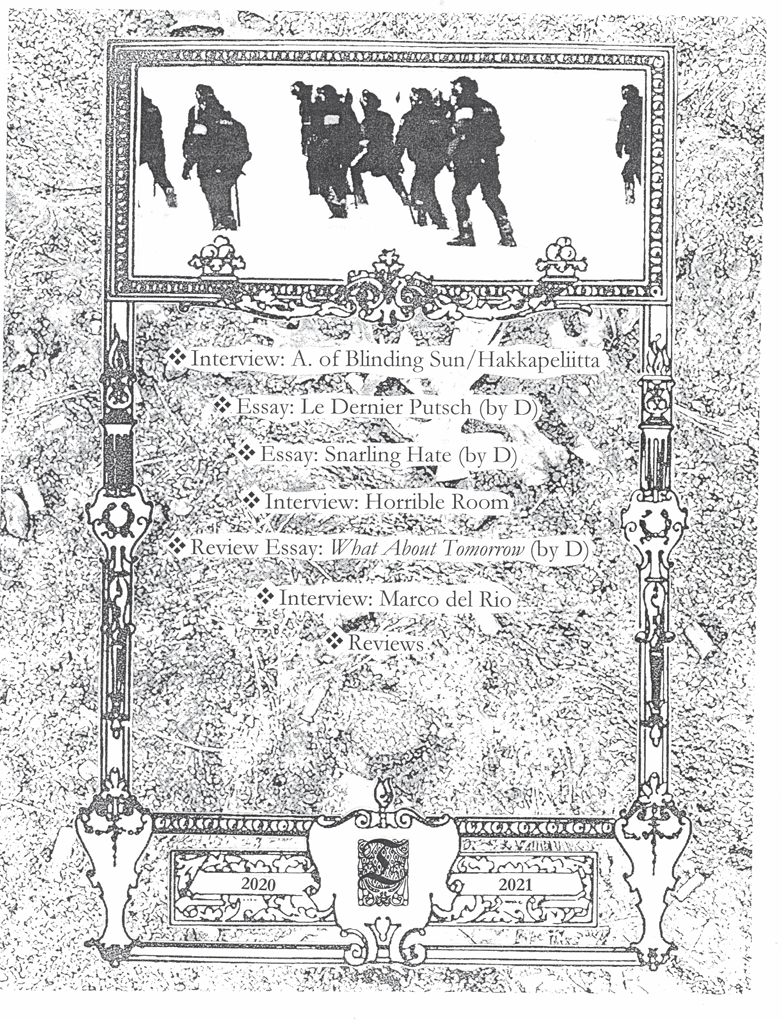 ❖ Interview: A. of Blinding Sun/Hakkapeliitta
❖ Essay: Le Dernier Putsch (by D)
❖ Essay: Snarling Hate (by D)
❖ Interview: Horrible Room
❖ Review Essay: What About Tomorrow (by D)
❖ Interview: Marco del Rio
❖ Reviews
2020
2021